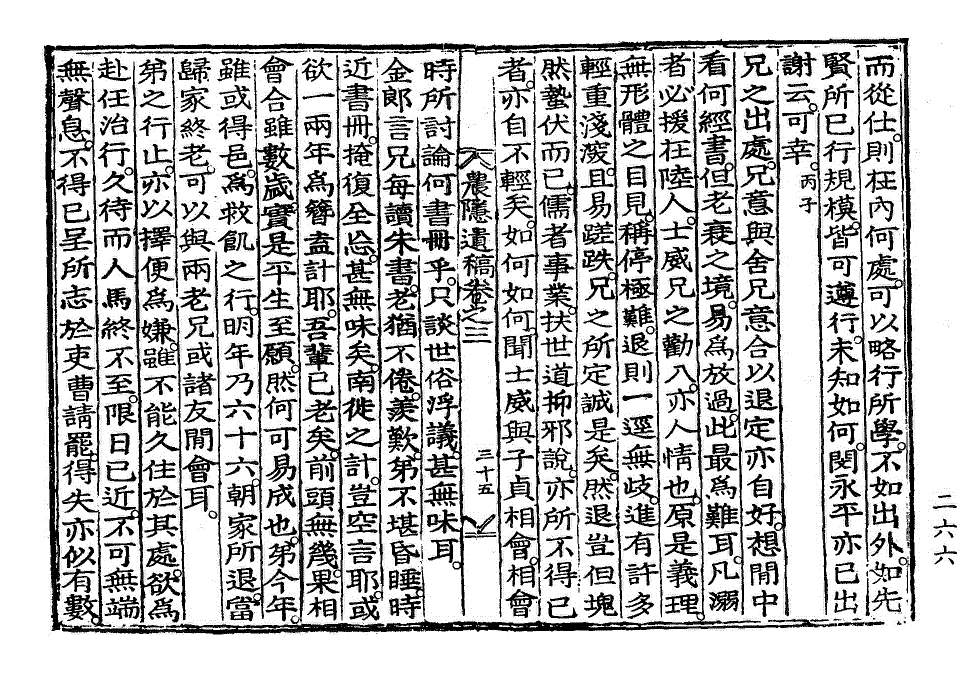 而從仕。則在內何處。可以略行所學。不如出外。如先
賢所已行規模。皆可遵行。未知如何。閔永平亦已出
謝云。可幸。丙子
兄之出處。兄意與舍兄意合以退定亦自好。想閒中
看何經書。但老衰之境。易爲放過。此最爲難耳。凡溺
者必援在陸人。士威兄之勸入。亦人情也。原是義理
無形體之目見。稱停極難。退則一逕無歧。進有許多
輕重淺深。且易蹉跌。兄之所定誠是矣。然退豈但塊
然蟄伏而已。儒者事業。扶世道抑邪說。亦所不得已
者。亦自不輕矣。如何如何。聞士威與子貞相會。相會
農隱遺稿卷之三
三十五
時所討論何書冊乎。只談世俗浮議。甚無味耳。
金郎言兄每讀朱書。老猶不倦。羨歎。弟不堪昏睡。時
近書冊。掩復全忘。甚無味矣。南徙之計。豈空言耶。或
欲一兩年爲簪盍計耶。吾輩已老矣。前頭無幾。果相
會合雖數歲。實是平生至願。然何可易成也。弟今年
雖或得邑。爲救飢之行。明年乃六十六。朝家所退。當
歸家終老。可以與兩老兄或諸友閒會耳。
弟之行止。亦以擇便爲嫌。雖不能久住於其處。欲爲
赴任治行。久待而人馬終不至。限日已近。不可無端
無聲息。不得已呈所志於吏曹請罷。得失亦似有數。
二六六